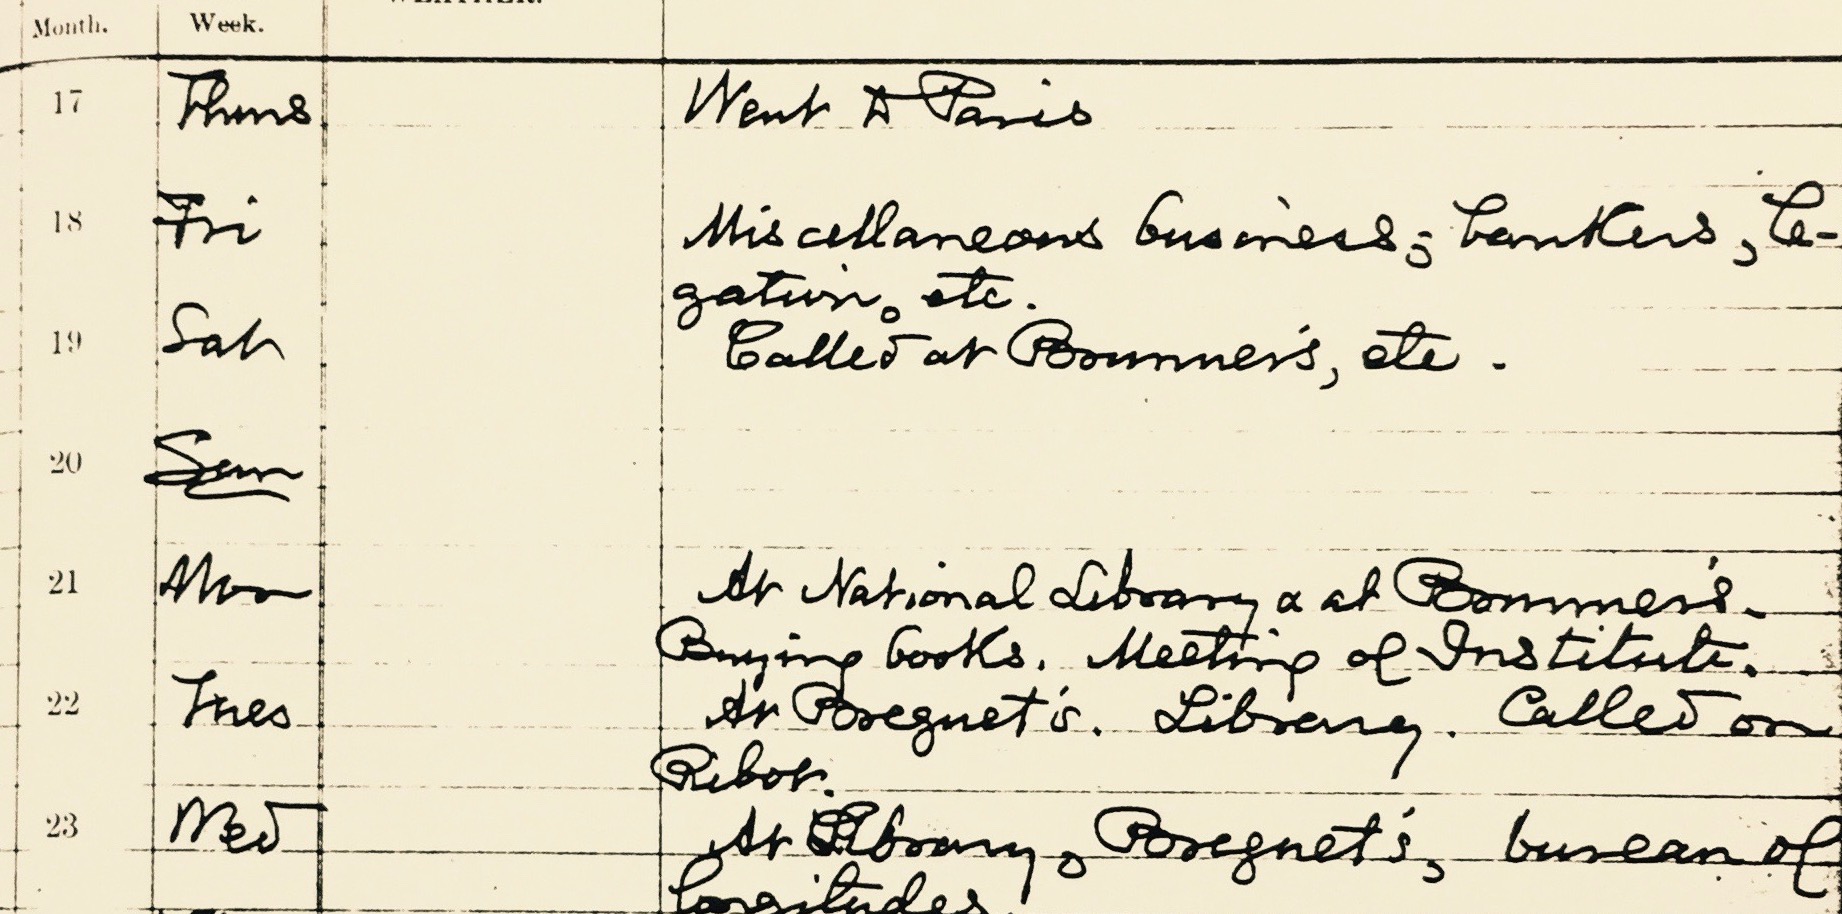 Month. Week. WEATHER.
17 Thurs Went to Paris
18 Fri Miscellaneous business; bankers, le-
gation, etc.
19 Sat Called at Brunner's, etc.
20 Sun
21 Mon At National Library & at Brunner's.
Buying books. Meeting of Institute.
22 Tues At Breguet's. Library. Called on
Ribot.
23 Wed At Library, Breguet's, bureau of
longitudes.